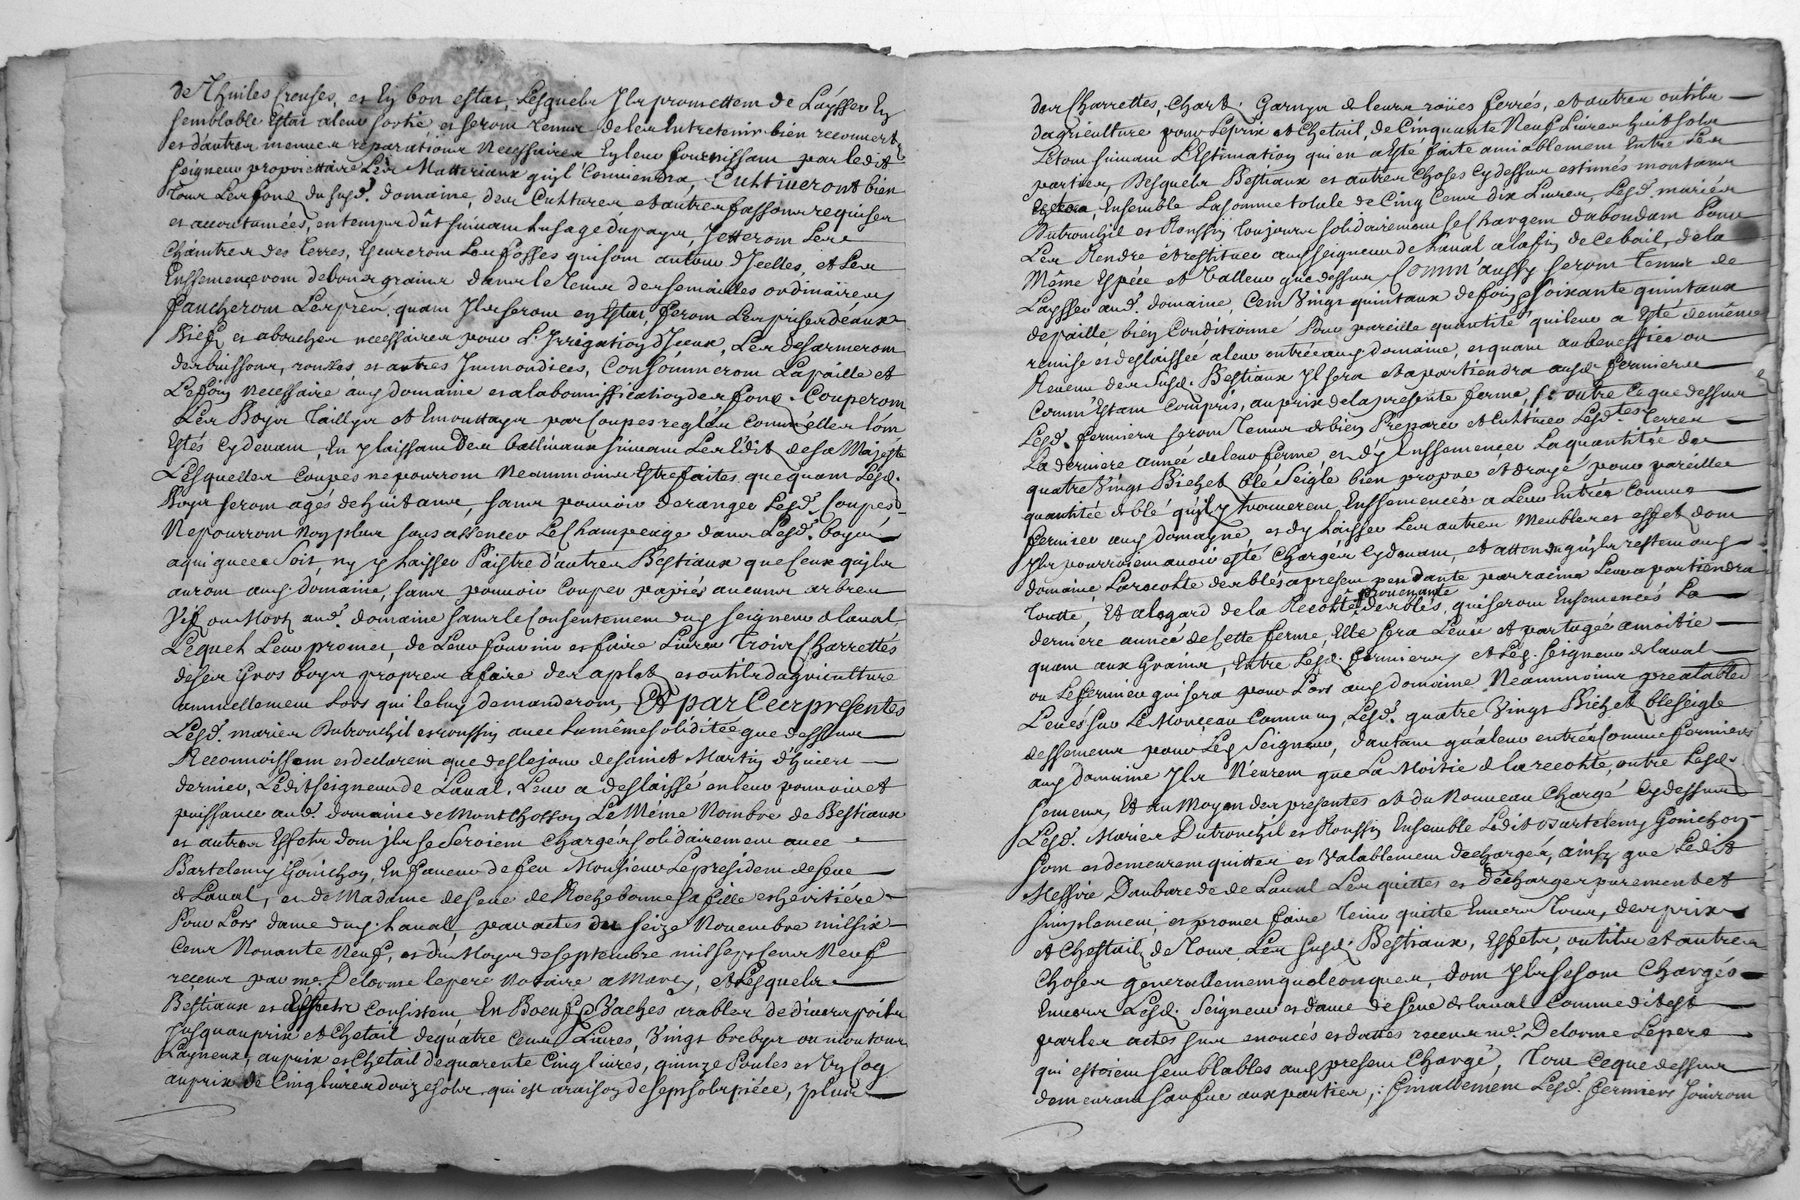 de Thuiles Creuses, et En bon estat, Lesquels Ils promettent de Laysser En
semblable Estat a leur sortie, et seront tenus de les Entretenir bien recouverts
et d'autres menues reparations Necessaires En leur fournissant par ledit
seigneur propriettaire Les Matteriaux qu'il Conviendra, Cultiveront bien
Tous Les fonds du susd. domaine, des Cultures et autres fassons requises
et accoutumées, en temps dût suivant Lusage du pays, Jetteront Les
Chaintres des terres, Cureront Les fosses qui sont autour d'Icelles, et Les
Enssemenceront de bons grains dans le tems des semailles ordinaires,
faucheront Les prés, quant Ils seront en Estat, feront Les prises deaux
Biefs et abouches necessaires pour L'Irrigation d'Iceux, Les desarmeront
des buissons, ronzes et autres Immondices, Consommeront La paille et
Le foin necessaire aud. domaine et a la bonniffication des fonds. Couperont
Les Boys Taillys et Emouttays par Coupes reglés Comm'elles l'ont
Estés Cy devant, En y laissant Des balliveaux suivant Les Edits de sa Majesté
Lesquelles Coupes ne pourront Neammoins Estre faites que quant Lesd.
Boys seront agés de huit ans, sans pouvoir deranger Lesd. Coupes
Ne pourront Non plus sous assencer Le Champeage dans Lesd. boys
a qui que ce soit, ny y Laisser Paistre d'autres Bestiaux que Ceux qu'ils
auront aud. domaine, sans pouvoir Couper par pied aucuns arbres
Vifs ou Morts aud. domaine sans le Consentement dud. seigneur de laval
Lequel Leur promet, de Leur fournir et faire Livrer Trois Charrettés
de ses Gros boys propres a faire des aplets et outils d'agriculture
annuellement Lors qu'ils le luy demanderont, Et par Ces presentes
Lesd. mariés Dutronchil et Roussin avec La même soliditée que dessus
Reconnoissent et declarent que des le jour de saint Martin d'hiver
dernier, Ledit seigneur de Laval, Leur a deslaissé en leur pouvoir et
puissance aud. domaine de Montchosson Le Méme Nombre de Bestiaux
et autres Effets dont ils se seroient Chargés solidairement avec
Bartelemy Goinchon, En faveur de feu Monsieur Le president de seve
de Laval, et de Madame de seve de Rochebonne sa fille et heritière
Pour Lors dame dud. Laval, par actes du seize Novembre mil six
Cens Nonante Neuf, et du Moys de septembre mil sept cens Neuf
recens par me. Delorme le pere Notaire a Marcy, et Lesquels
Bestiaux et Effets Consistent En Boeufs Vaches arables de divers poils
Jusqu'au prix et Chetail de quatre Cens Livres, Vingt brebys ou moutons
Layneux, au prix et Chetail de quarente Cinq livres, quinze Poules et Un Coq
au prix de Cinq livres douze sols, qui est a raison de sept sols piéce, plus
des Charrettes, Chart. Garnys de leurs roües ferrés, et autres outils
d'agriculture pour Le prix et Chetail, de Cinquante Neuf Livres huit sols
Le tout suivant L'Estimation qui en a Esté faite amiablement Entre Les
parties, Desquels Bestiaux et autres Choses Cy dessus estimés montant
Ensemble La somme totale de Cinq Cens dix Livres, Lesd. mariés
Dutronchil et Roussin Toujours solidairement se Chargent d'abondant Pour
Les Rendre et restituer aud. seigneur de Laval a la fin de Ce bail, de la
Même Espéce et Valleur que dessus, Comm'aussy seront tenus de
Laysser aud. domaine, Cent Vingt quintaux de foin, Soixante quintaux
de paille bien Conditionné Pour pareille quantité qui leur a Esté de même
remise et deslaissée a leur entrée aud. domaine, et quant au beneffice ou
Revenu des susd. Bestiaux Il sera et apartiendra aud. fermiers
Comm'Estant Compris, au prix de la presente ferme, et outre Ce que dessus
Lesd. fermiers seront Tenus de bien Préparer et Cultiver Lesdtes. Terres
La derniere année de leur ferme et d'y Enssemencer La quantité de
quatre Vingt Bichets blé Seigle bien propre et drayé pour pareille
quantitée de blé qu'ils y trouverent Enssemencés a Leur Entrée Comme
fermier aud. domayne, et d'y Laisser Les autres Meubles et effets dont
Ils pourroient avoir esté Chargés Cy devant, et attendu qu'ils restent aud.
domaine La recolte des blés a present pendante par racine Leur apartiendra
Toutte, Et a l'egard de la Recolte provenante des blés, qui seront Ensemencés La
derniere année de Cette ferme, Elle sera Levée et partagée a moitié
quant aux Grains, Entre Lesd. fermiers, et Led. Seigneur de laval
ou Le fermier qui sera pour Lors aud. domaine Neanmoins prealablement
Levés sur Le Monceau Commun, Lesd. quatre Vingt Bichets ble seigle
des semens pour Led. Seigneur, d'autant qu'a leur entrée comme fermiers
aud. domaine Ils N'eurent que La Moitié de la recolte, outre Lesd.
semens, Et au Moyen des presentes et du Nouveau Chargé Cy dessus
Lesd. Mariés Dutronchil et Roussin Ensemble Ledit Bartelemy Goinchon
sont et demeurent quittes et Valablement dechargés, ainsy que Ledit
Messire Daubarede de Laval Les quittes et décharges purement et
simplement, et promet faire Tenir quitte Envers Tous, des prix
et Chestail, de Tous Les susd. Bestiaux, Effets, outils et autres
Choses generallement quelconques, dont Ils se sont Chargés
Envers Lesd. Seigneur et dame de Seve de laval Comme dit est
par les actes sus enoncés et dattés recens me. Delorme Le pere
qui estoient semblables aud. present Chargé, Tout Ce que dessus
demeurant sauf ... aux parties, finallement Lesd. fermiers Joüiront